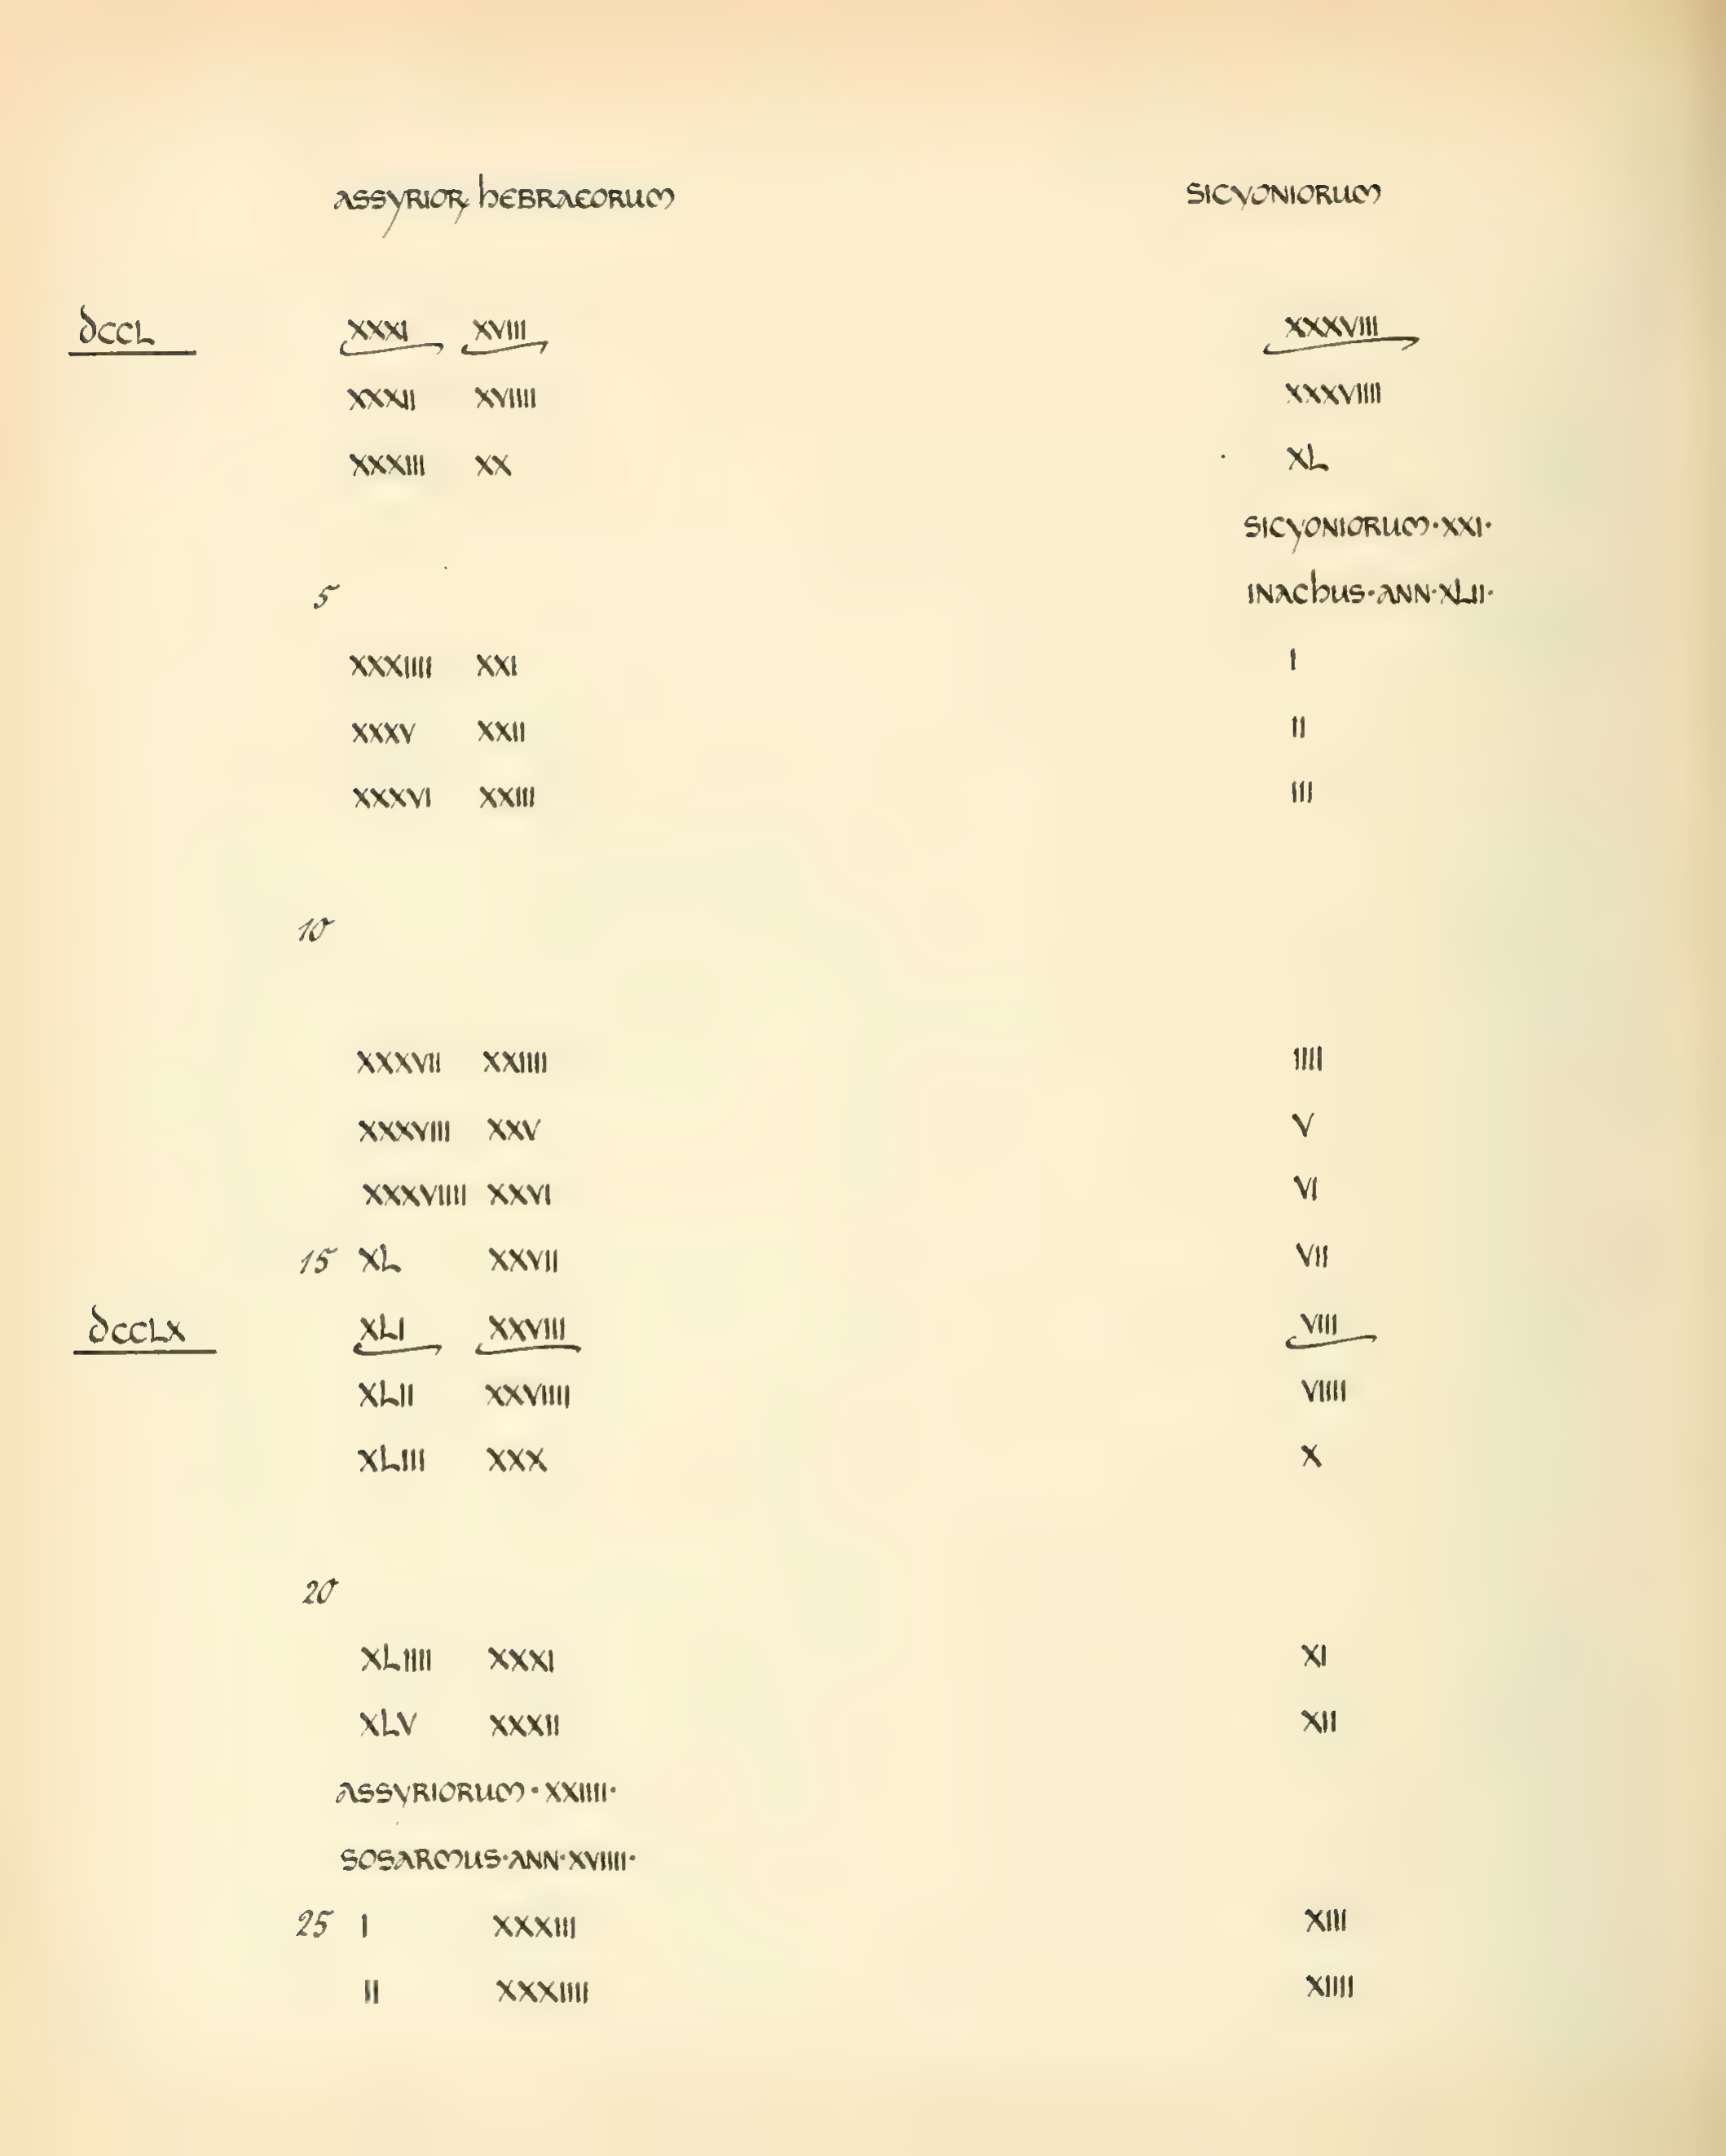 ASSYRIOR HEBRAEORUM SICYONIORUM
DCCL XXXI XVIII XXXVIII
XXXII XVIIII XXXVIIII
XXXIII XX XL
SICYONIORUM·XXI·
5 INACHUS·ANN·XLII·
XXXIIII XXI I
XXXV XXII II
XXXVI XXIII III
10
XXXVII XXIIII IIII
XXXVIII XXV V
XXXVIIII XXVI VI
15 XL XXVII VII
DCCLX XLI XXVIII VIII
XLII XXVIIII VIIII
XLIII XXX X
20
XLIIII XXXI XI
XLV XXXII XII
ASSYRIORUM·XXIIII·
SOSARMUS·ANN·XVIIII·
25 I XXXIII XIII
II XXXIIII XIIII